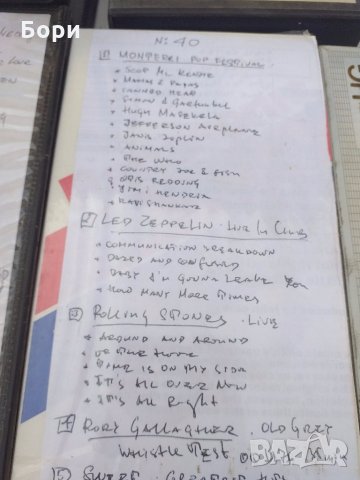 Бори
N: 40
1 MONTEREI POP FESTIVAL
SCOT Mc KENZIE
MAMAS & PAPAS
CANNED HEAD
SIMON & GARFUNKEL
HUGH MASEKELA
JEFFERSON AIRPLANE
JANIS JOPLIN
ANIMALS
THE WHO
COUNTRY JOE & FISH
OTIS REDDING
JIMI HENDRIX
RAVI SHANKAR
2 LED ZEPPELIN - LIVE IN
COMMUNICATION BREAKDOWN
DAZED AND CONFUSED
BABY I'M GONNA LEAVE YOU
HOW MANY MORE TIMES
3 ROLLING STONES . LIVE
AROUND AND AROUND
OF THE HOOK
TIME IS ON MY SIDE
IT'S ALL OVER NOW
IT'S ALL RIGHT
4 RORY GALLAGHER . OLD GREY
WHISTLE TEST
5 SWEET . GREATEST HITS
bazar.bg